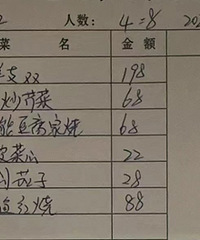 2 人数: 4=8 202
菜 名 金额
支 198
炒 菜 68
豆腐家烧 68
菜心 22
茄子 28
红烧 88